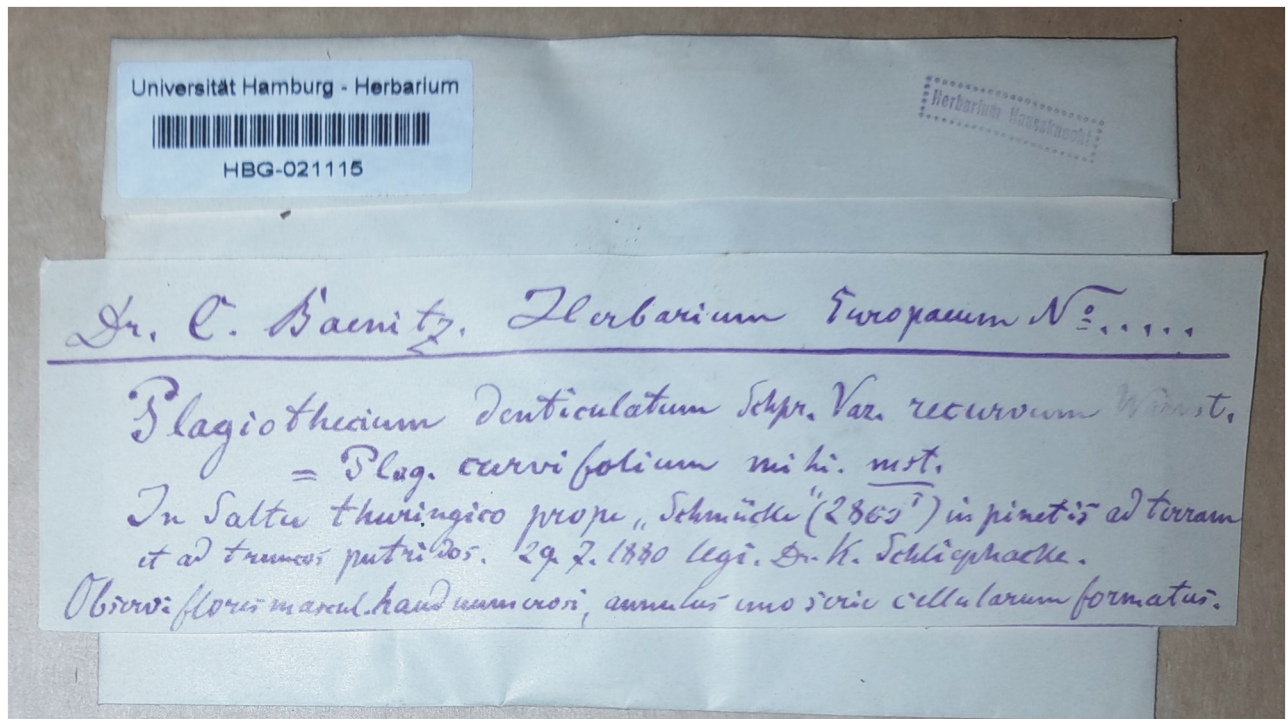 Universität Hamburg - Herbarium
HBG-021115
Herbarium Haussknecht
Dr. C. Baenitz. Herbarium Europaeum No.....
Plagiothecium denticulatum Schpr. Var. recurvum Warnst.
= Plag. curvifolium mihi. mst.
In Saltu thuringico prope „Schmücke" (2863') in pinetis ad terram
et ad truncos putridos. 29.7.1880 legi. Dr. K. Schliephacke.
Observ: flores mascul. haud numerosi, annulus uno serie cellularum formatus.